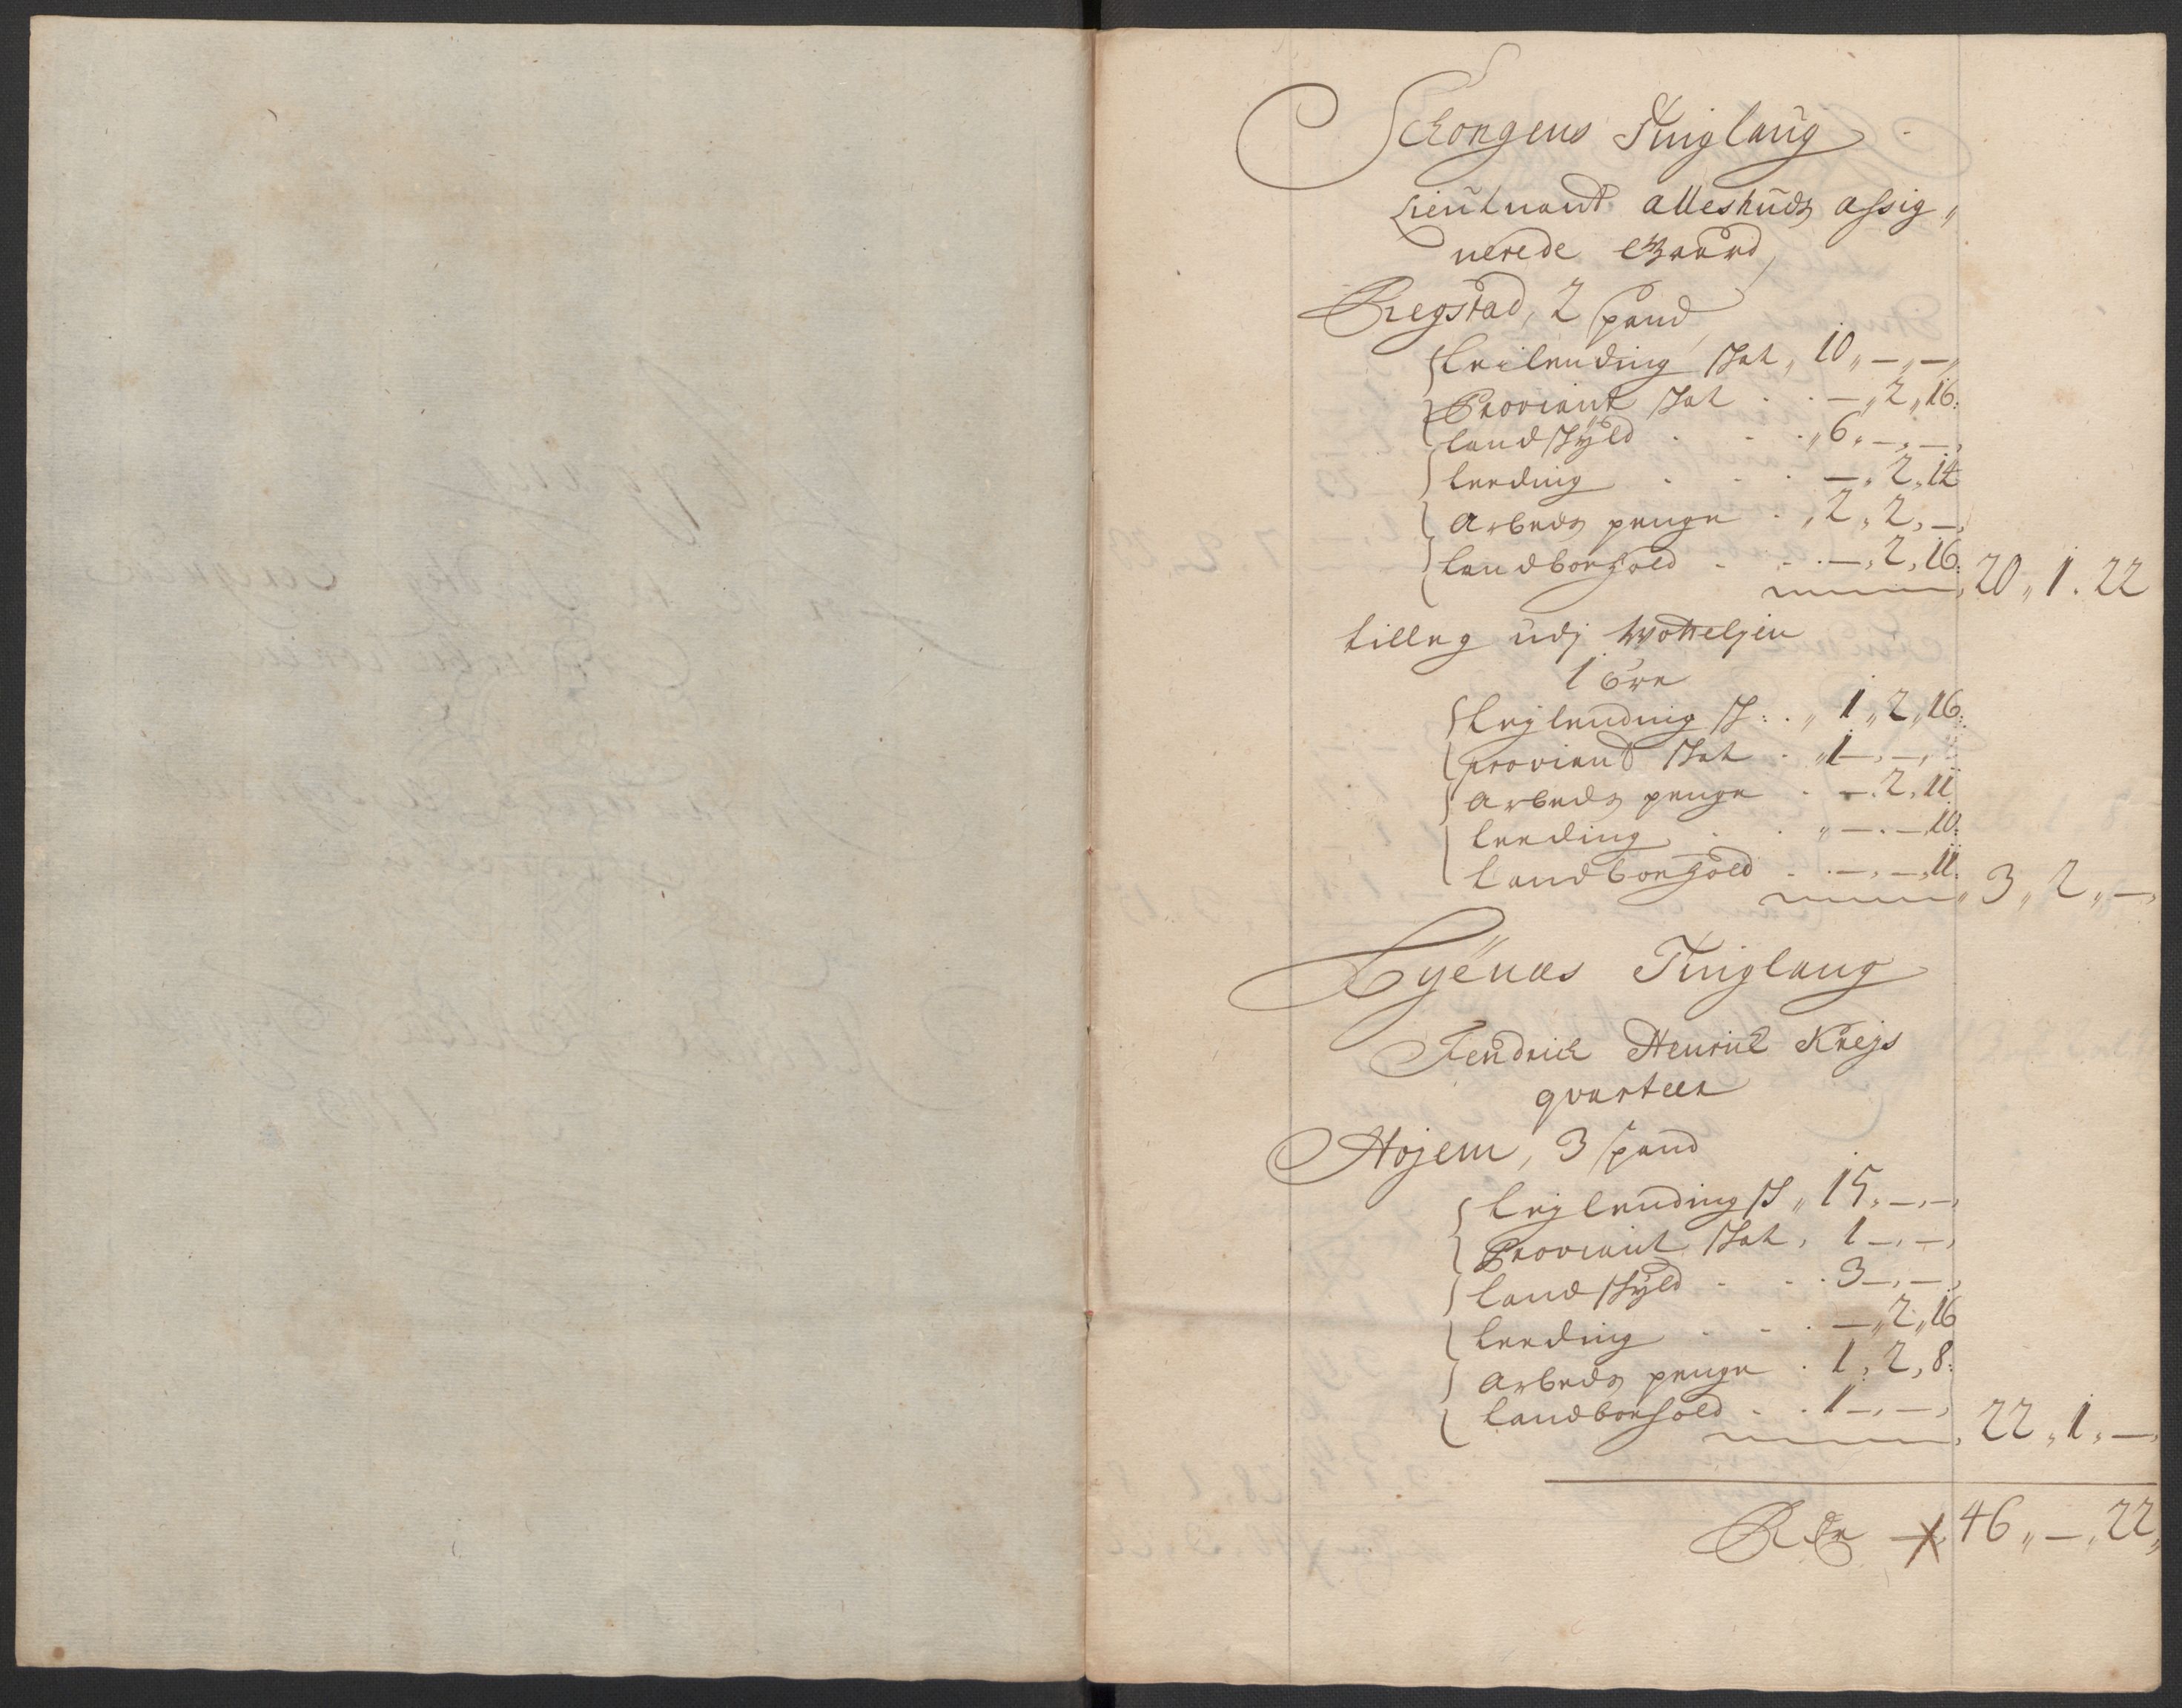 Schongens Tinglaug
Lieutnandt alleshuds assig„
nerede Gaard,
Regstad, 2 spand
Leilending skat, 10„ —„ —„
Proviant skat . . —„ 2„ 16.
landskyld . . . „6„ —„ —,
leeding . . . —„ 2„ 14
arbeds penge . „2„ 2, —,
landbonhold . . —, 2, 16: 20„ 1. 22
tilleg udj Wotteljen
1 öre
Lejlending sk: . „ 1„ 2„ 16:
proviand skat . „1—, —,
arbeds penge . —. 2, 11
leeding . . „ —. —, 10:
Landbonhold . . —, —, 11. „3„ 2„ —,
Byenæs Tinglaug
Fendrick Henrick Krejs
qvarteer
Hojem, 3 spand
Lejlending sk„ 15, —, —,
Proviant skat, 1 —, —,
Landskyld . . . 3 —, —,
leeding . . . —„ 2„ 16
arbeds penge . 1, 2, 8:
landbonhold . . 1 —, —, 22„ 1„ —,
Rdr 46„ —„ 22„